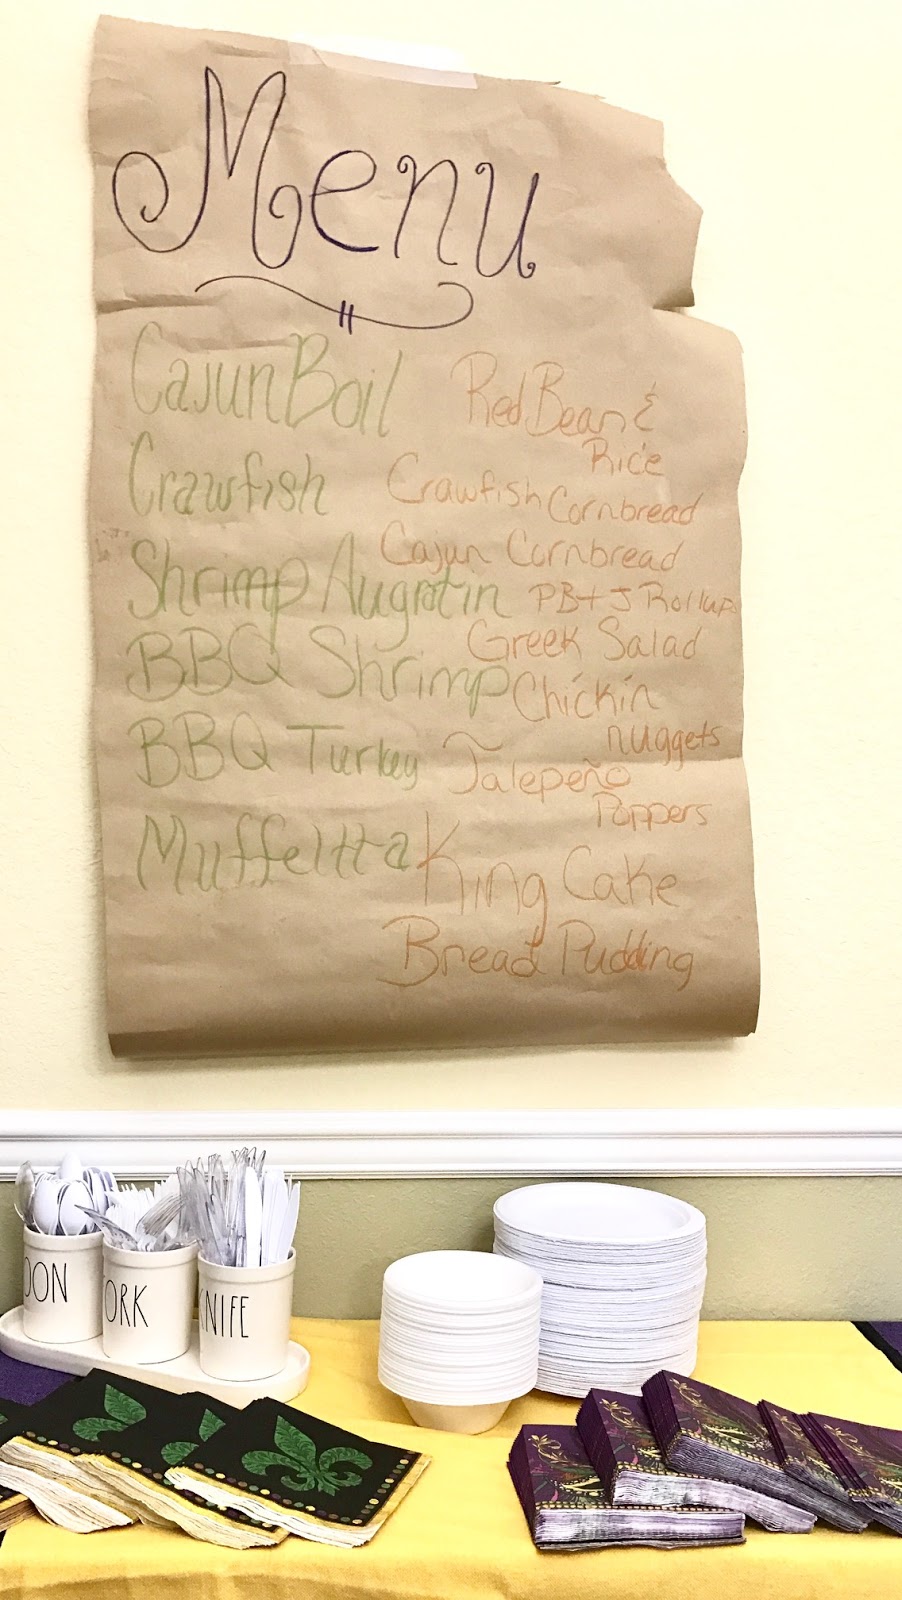 Menu
Cajun Boil
Crawfish
Shrimp Augratin
BBQ Shrimp
BBQ Turkey
Muffeltta
Red Bean &
Rice
Crawfish Cornbread
Cajun Cornbread
PB+J Rollups
Greek Salad
Chickin
nuggets
Jalepeño
Poppers
King Cake
Bread Pudding
OON
ORK
KNIFE